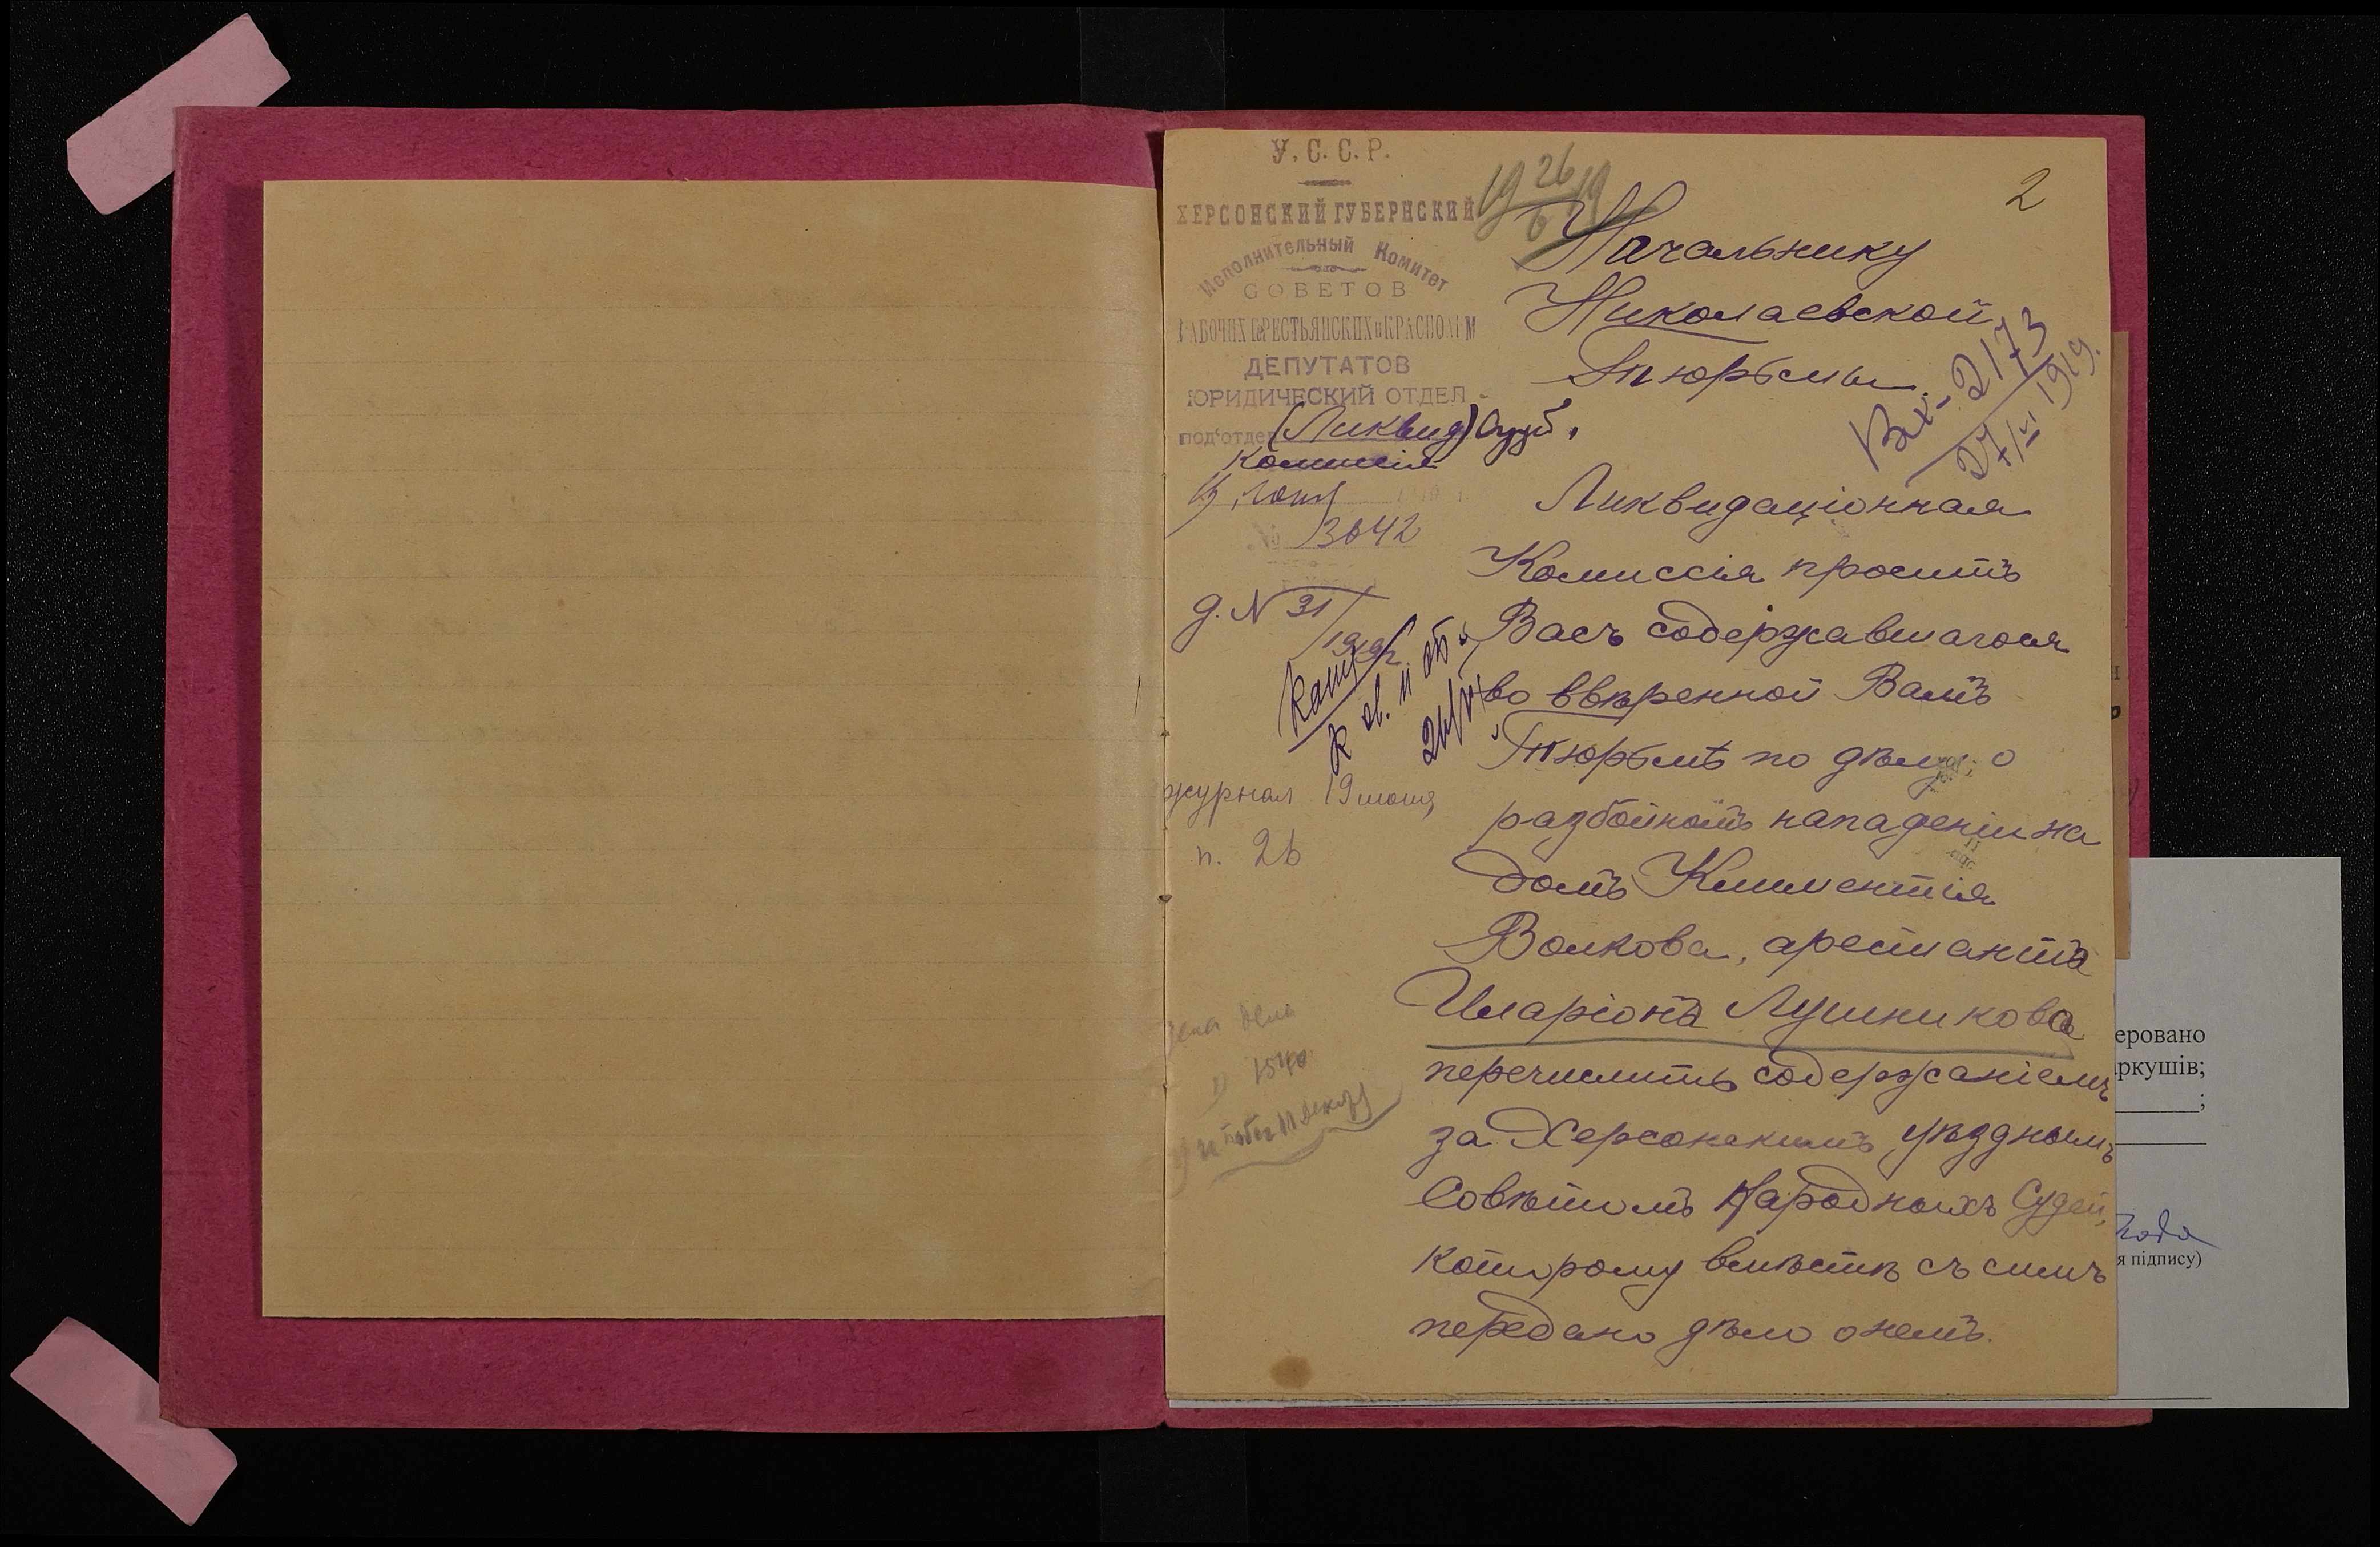 У. С. С. Р.
ХЕРСОНСКИЙ ГУБЕРНСКИЙ
Исполнительный Комитет
СОВЕТОВ
РАБОЧИХ КРЕСТЬЯНСКИХ и КРАСНОАРМ
ДЕПУТАТОВ
ЮРИДИЧЕСКИЙ ОТДЕЛ
под'отдел (Ликвид) Суд.
комиссія
3642
д. N 31/1919
26/VI
журнал 19 июня
п. 26
19 26/6 19
2
Начальнику
Николаевской
Тюрьмы
Вх- 2173
27/VI 1919.
Ликвидаціонная
Комиссія проситъ
Васъ содержавшагося
во ввѣренной Вамъ
Тюрьмѣ по дѣлу о
разбойномъ нападеніи на
домъ Климентія
Волкова, арестанта
Иларіона Лушникова
перечислить содержаніемъ
за Херсонскимъ уѣзднымъ
Совѣтомъ Народныхъ Судей,
которому вмѣстѣ съ симъ
передано дѣло о немъ.
еровано
ркушів;
я підпису)